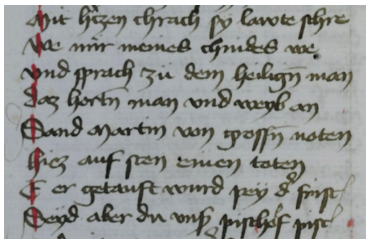 Mit h'czen chrach sy lawte schre
We mir meines chindes we
vnd sprach zu dem heilign man
daz hortn man vnd weyb an
Sand Martin von grossn noten
hiez auf sten einen toten
E er getauft wurd pey d' frist
Seyd aber du vnser pischolf pist